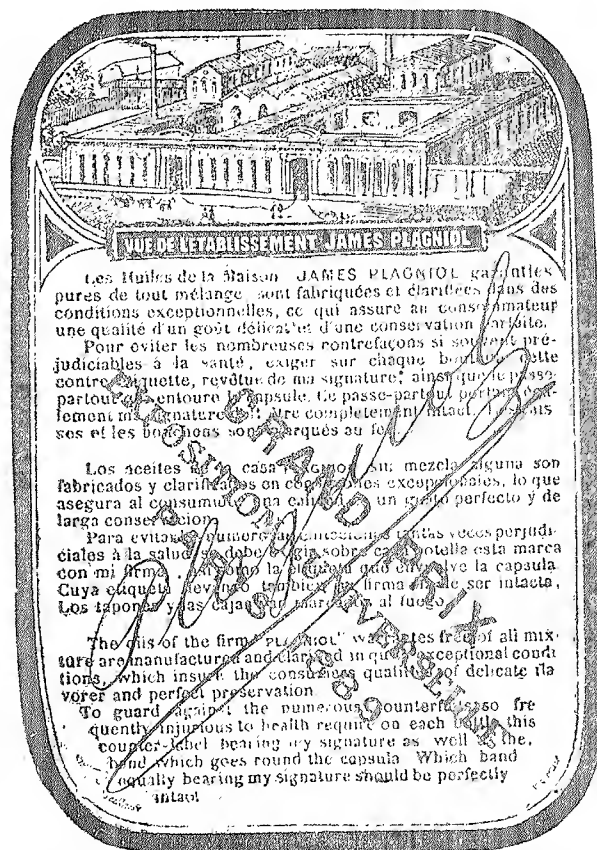 VUE DE L'ETABLISSEMENT JAMES PLAGNIOL
Les Huiles de la Maison JAMES PLAGNIOL garanties
pures de tout mélange, sont fabriquées et clarifiées dans des
conditions exceptionnelles, ce qui assure au consommateur
une qualité d'un goût délicat et d'une conservation parfaite.
Pour éviter les nombreuses contrefaçons si souvent pré-
judiciables à la santé, exiger sur chaque bouteille cette
contre-étiquette, revêtue de ma signature, ainsi que le passe-
partout entoure capsule. Ce passe-partout portant éga-
lement ma signature doit être completement intact.
ses et les bouchons sont marqués au
Los aceites de la casa PLAGNIOL sin mezcla alguna son
fabricados y clarificados en condiciones excepcionales, lo que
asegura al consumidor una calidad un gusto perfecto y de
larga conservacion
Para evitar tantas veces perjudi-
ciales à la salud, se debe sobre cada botella esta marca
con mi firma, asi como la etiqueta que envuelve la capsula
Cuya etiqueta llevando tambien firma de ser intacta,
Los tapones y las cajas marcados al fuego
The oils of the firm "PLAGNIOL" warrantes free of all mix-
ture are manufactured and clarified in quite exceptional condi
tions, which insure the consumers qualities of delicate fla
vorer and perfect preservation
To guard against the numerous fre
quently injurious to health require on each bottle this
counter-label bearing my signature as well as the,
band which goes round the capsula Which band
equally bearing my signature should be perfectly
intact
GRAND PRIX
EXPOSITION UNIVERSELLE
PARIS